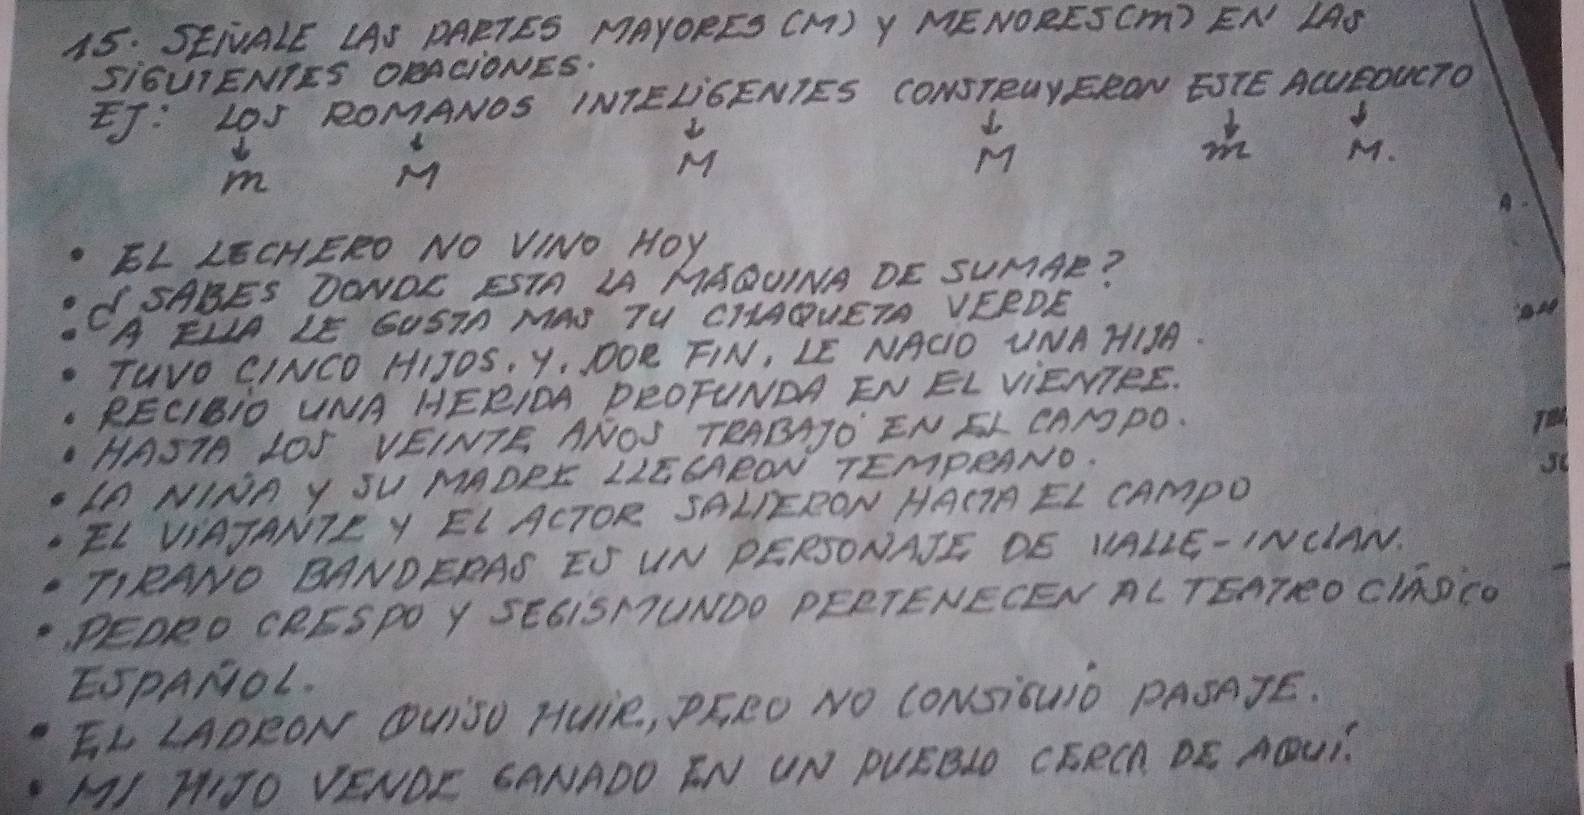 15. SEÑALE LAS PARTES MAYORES (M) Y MENORES (m) EN LAS
SIGUIENTES ORACIONES.
EJ: LOS ROMANOS INTELIGENTES CONSTRUYERON ESTE ACUEDUCTO
m M M M m M.
• EL LECHERO NO VINO HOY
• ¿SABES DONDE ESTA LA MÁQUINA DE SUMAR?
• A ELLA LE GUSTA MAS TU CHAQUETA VERDE
• TUVO CINCO HIJOS, Y, POR FIN, LE NACIO UNA HIJA.
• RECIBIO UNA HERIDA PROFUNDA EN EL VIENTRE.
• HASTA LOS VEINTE AÑOS TRABAJO EN EL CAMPO.
• LA NIÑA Y SU MADRE LLEGARON TEMPRANO.
• EL VIAJANTE Y EL ACTOR SALIERON HACIA EL CAMPO
• TIRANO BANDERAS ES UN PERSONAJE DE VALLE-INCLAN.
• PEDRO CRESPO Y SEGISMUNDO PERTENECEN AL TEATRO CLÁSICO
ESPAÑOL.
• EL LADRON QUISO HUIR, PERO NO CONSIGUIÓ PASAJE.
• MI HIJO VENDE GANADO EN UN PUEBLO CERCA DE AQUÍ.